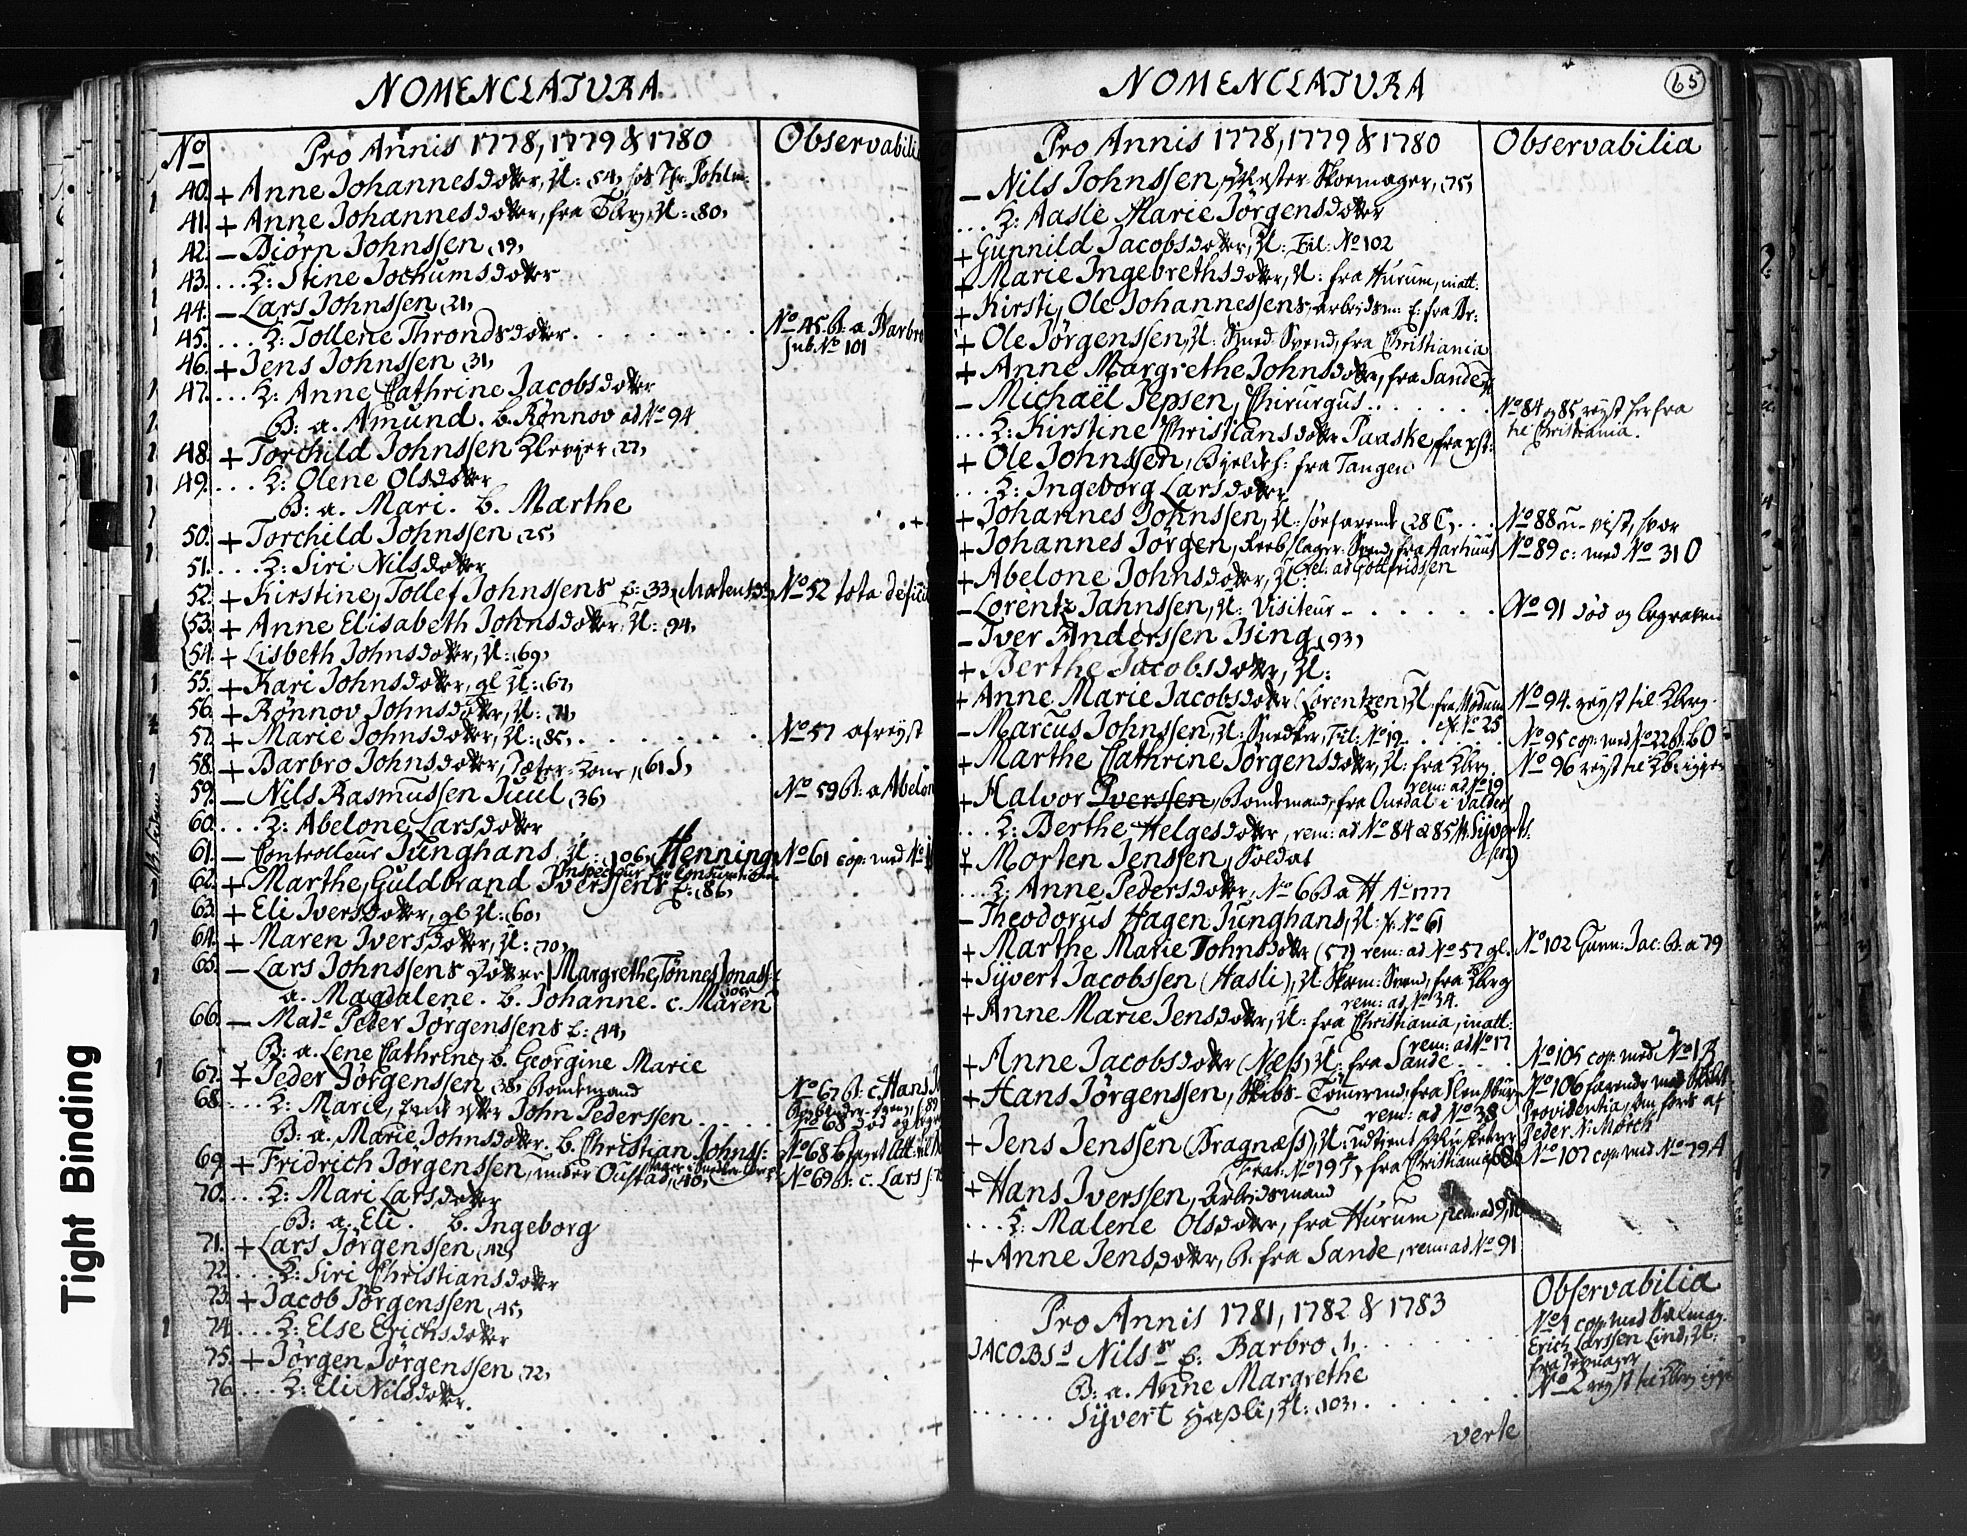 NOMENCLATURA
No Pro Annis 1778, 1779 & 1780 Observabili
40. + Anne Johannesdotter, U: 54, hos Pohlm.
41. + Anne Johannesdotter, fra Tbrg, U: 80,
42. — Biörn Johnssen, 19,
43. ... K: Stine Jochumsdotter
44. — Lars Johnssen, 21,
45. ... K: Tollene Throndsdotter No 45. B: a. Barbro
Sub. No 101
46. + Jens Johnssen, 31,
47. ... K: Anne Cathrine Jacobsdotter
B: a. Amund. b. Rönnov ad No 94
48. + Torchild Johnssen Klevjer, 27,
49. ... K: Olene Olsdotter
B: a. Mari. b. Marthe
50. + Torchild Johnssen, 25,
51. ... K: Siri Nilsdotter
52. + Kirstine, Tollef Johnssens E: 33, No 52 tota deficit
53. + Anne Elisabeth Johnsdotter, U: 94,
54. + Lisbeth Johnsdotter, U: 69,
55. + Kari Johnsdotter, gl U: 67,
56. + Rönnov Johnsdotter, U: 71,
57. + Marie Johnsdotter, U: 85, No 57 afreyst
58. + Barbro Johnsdotter, Kone, 61 J,
59. — Nils Rasmussen Juul, 36, No 59 B: a Abelon
60. ... K: Abelone Larsdotter
61. — Controlleur Junghans, U: 106, Henning No 61 cop: med No
Inspecteur for Consumtionen
62. + Marthe, Guldbrand Iverssens E: 86,
63. + Eli Iversdotter, gl U: 60,
64. + Maren Iversdotter, U: 70,
65. — Lars Johnssens Döttre, Margrethe, Tönnes Jonass:
a. Magdalene. b. Johanne. c. Maren
66. — Made Peder Jörgenssens E: 44,
B: a. Lene Cathrine, b. Georgine Marie
67. + Peder Jörgenssen, 38, Bomtemand No 67 B: c. Hans
68. ... K: Marie, Enke efter John Pederssen No 68 död og begr
B: a. Marie Johnsdotter. b. Christian Johnss: No 68 b
69. + Fridrich Jörgenssen, under Oustad, 40, No 69 B: c. Lars
70. ... K: Mari Larsdotter
B: a. Eli. b. Ingeborg
71. + Lars Jörgenssen, 42,
72. ... K: Siri Christiansdotter
73. + Jacob Jörgenssen, 45,
74. ... K: Else Erichsdotter
75. + Jörgen Jörgenssen, 72,
76. ... K: Eli Nilsdotter.
NOMENCLATURA 65
Pro Annis 1778, 1779 & 1780 Observabilia
— Nils Johnssen, Mester Skoemager, 75,
... K: Aasle Marie Jörgensdotter
+ Gunnild Jacobsdotter, U: Fil: No 102
+ Marie Ingebrethsdotter, U: fra Hurum, inatt:
+ Kirsti, Ole Johannessens, arbeidsm: E: fra Str:
+ Ole Jörgenssen, U: Smed Svend, fra Christiania
+ Anne Margrethe Johnsdotter, fra Sande
— Michaël Jepsen, Chirurgus No 84 og 85 reyst herfra
til Christiania.
... K: Kirstine Christiansdotter Paaske, fra xst:
+ Ole Johnssen, fra Tangen
... K: Ingeborg Larsdotter
+ Johannes Johnssen, U: söefarende, 28 C, No 88
+ Johannes Jörgen, Reebslager Svend, fra Aarhuus No 89 c: med No 31 O
+ Abelone Johnsdotter, U: Fil: ad Gottfridssen
— Lorentz Jahnssen, U: Visiteur No 91 död og begraven
— Iver Anderssen Ising, 93,
+ Berthe Jacobsdotter, U:
+ Anne Marie Jacobsdotter (Lorentzen) U: fra Modum No 94. reyst til Kbrg.
ex. No 25
— Marcus Johnssen, U: Snedker, Fil: No 19 No 95 cop: med No 22 B: b O
+ Marthe Cathrine Jörgensdotter, U: fra Kbrg No 96 reyst til Kb: igjen
rem: ad No 19
+ Halvor Iverssen, Bomtemand, fra Ourdal i Valders
... K: Berthe Helgesdotter, rem: ad No 84 & 85
+ Morten Jenssen, Soldat
... K: Anne Pedersdotter, No 6 B: a H Ao 1777
— Theodorus Hagen Junghans, U: f. No 61
+ Marthe Marie Johnsdotter (57) rem: ad No 57 gl. No 102 Gunn: Jac: B: a 79
+ Sÿvert Jacobssen (Hasli), U: Skom: Svend, fra Kbrg
rem: ad No 34.
+ Anne Marie Jensdotter, U: fra Christiania, inatt:
rem: ad No 17
+ Anne Jacobsdotter (Næss) U: fra Sande No 105 cop: med No 1 B
+ Hans Jörgenssen, Skibs-Tömmermd, fra Flensburg No 106 farende med Skibet
rem: ad No 38 Providentia, som föres af
Peder N: Mörch
+ Jens Jenssen (Bragnæss), U: No 107 cop: med No 79 A
No 19 I, fra Christiania
+ Hans Iverssen, Arbeidsmand
... K: Malene Olsdotter, fra Hurum
+ Anne Jensdotter, B: fra Sande, rem: ad No 91
Pro Annis 1781, 1782 & 1783 Observabilia
JACOBSs Nilss E: Barbro, 1, No 1 cop: med
Erich Larssen Lind, U:
B: a. Anne Margrethe
Sÿvert Hassli, U: 103, No 2 reyst til Kbrg igjen
verte
Tight Binding